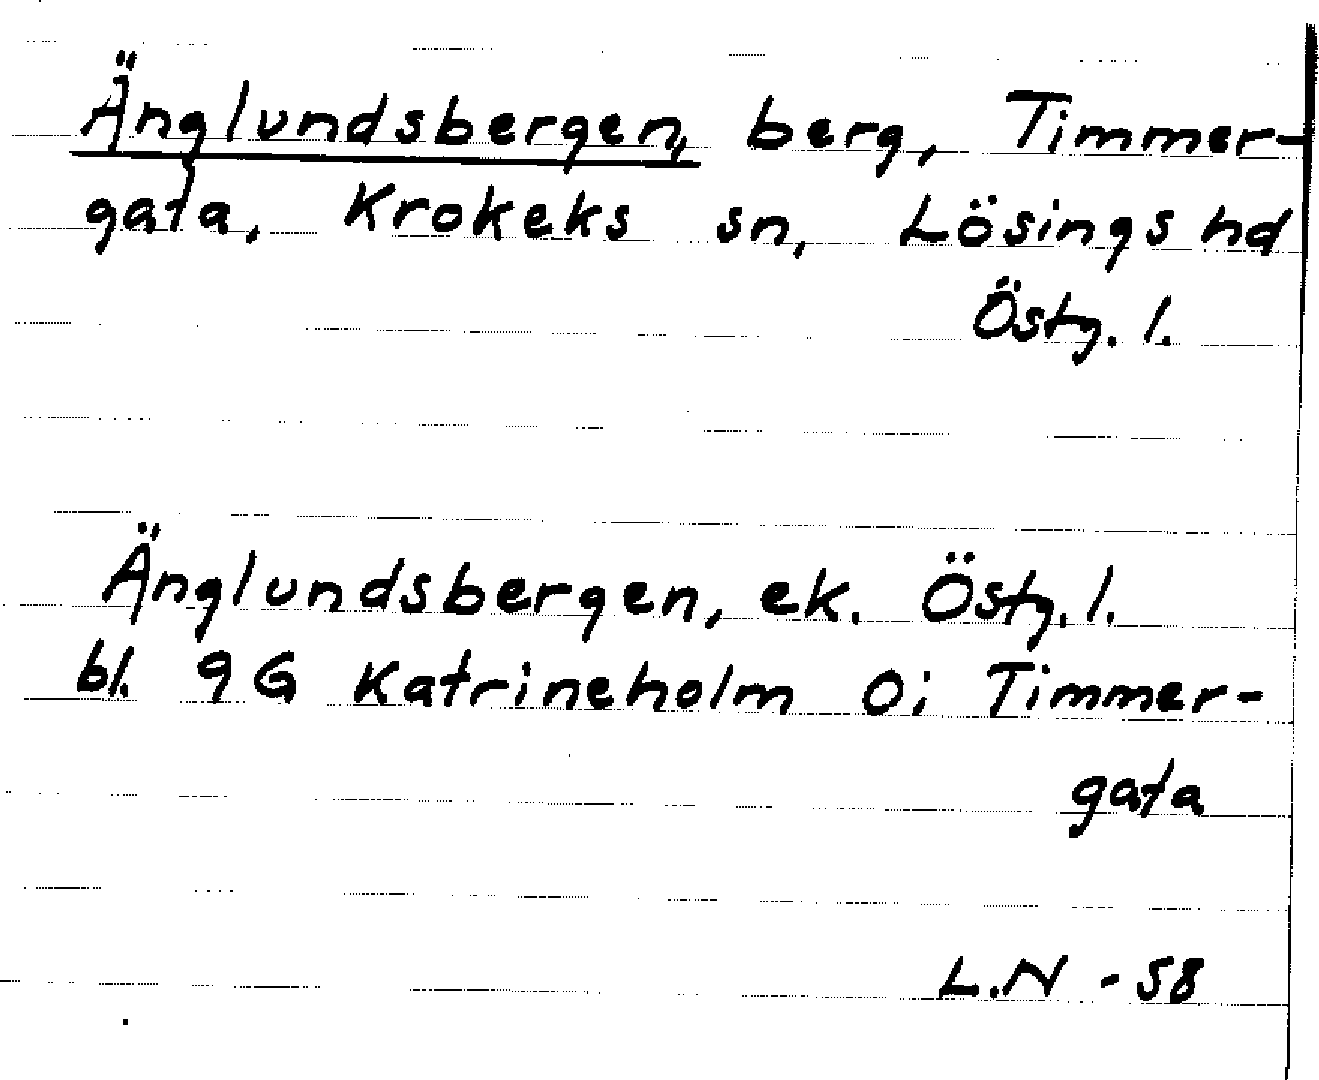 Änglundsbergen, berg, Timmer-
gata, Krokeks sn, Lösings hd
Östg. l.
Änglundsbergen, ek. Östg. l.
bl. 9G Katrineholm Oi Timmer-
gata
L.N -58